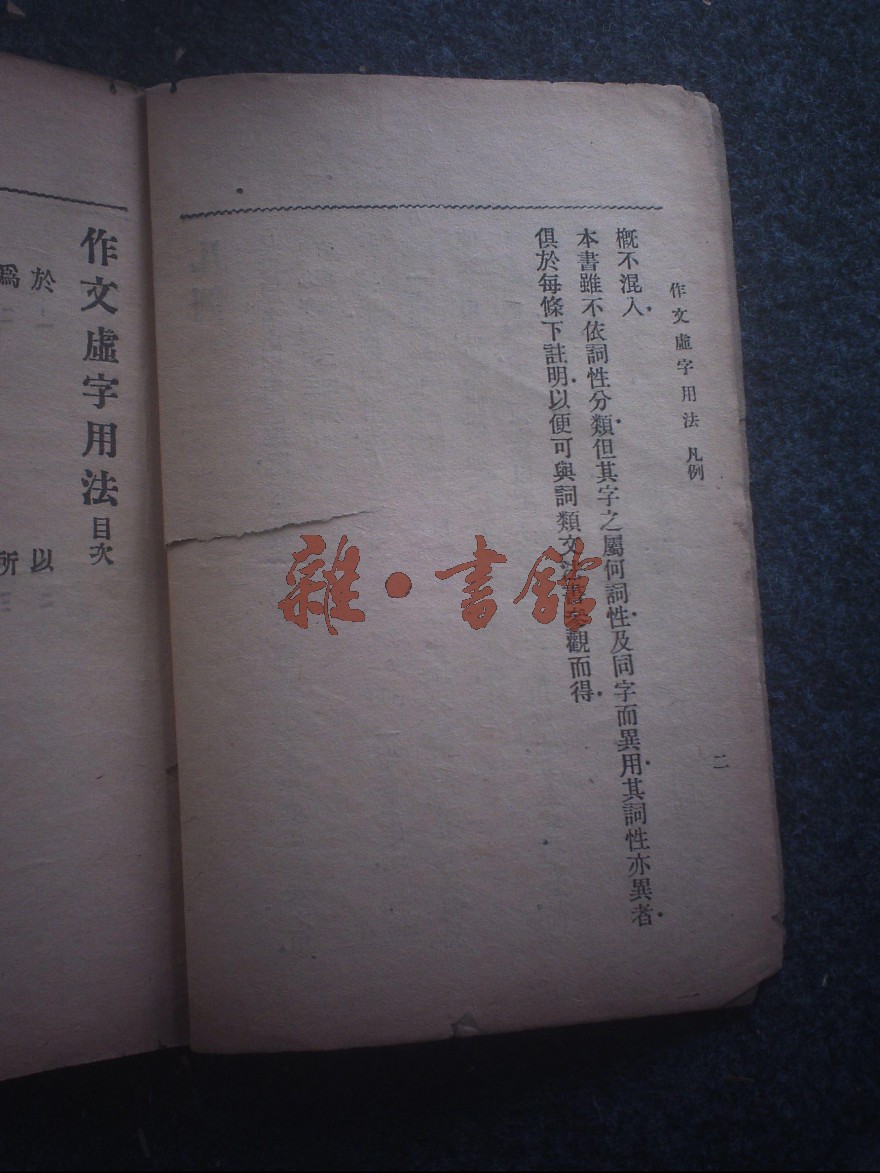 作文虛字用法 凡例
二
概不混入.
本書雖不依詞性分類.但其字之屬何詞性.及同字而異用.其詞性亦異者.
俱於每條下註明.以便可與詞類文 觀而得.
作文虛字用法 目次
於 以
一 二
爲 所
二 三
雜·書館